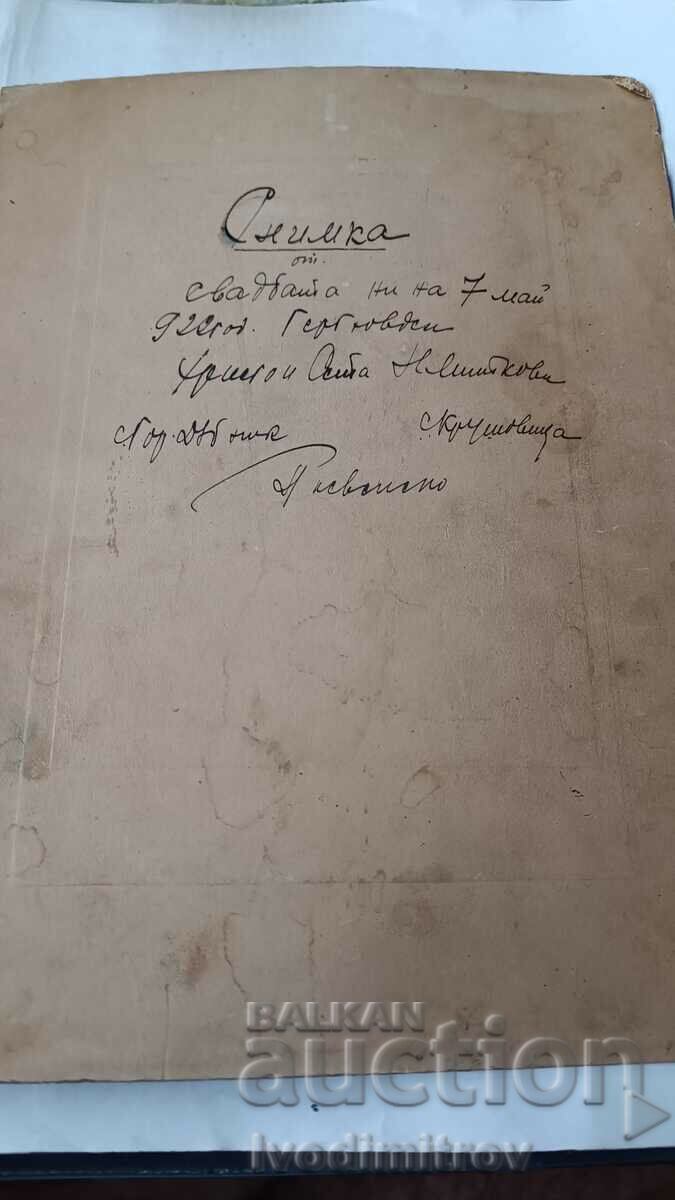 Снимка
от
свадбата ни на 7 май
922 год. Гергьовден
Христо и
с. Гор. Дѫбник с. Крушовица
Плевенско
BALKAN
auction
Ivodimitrov